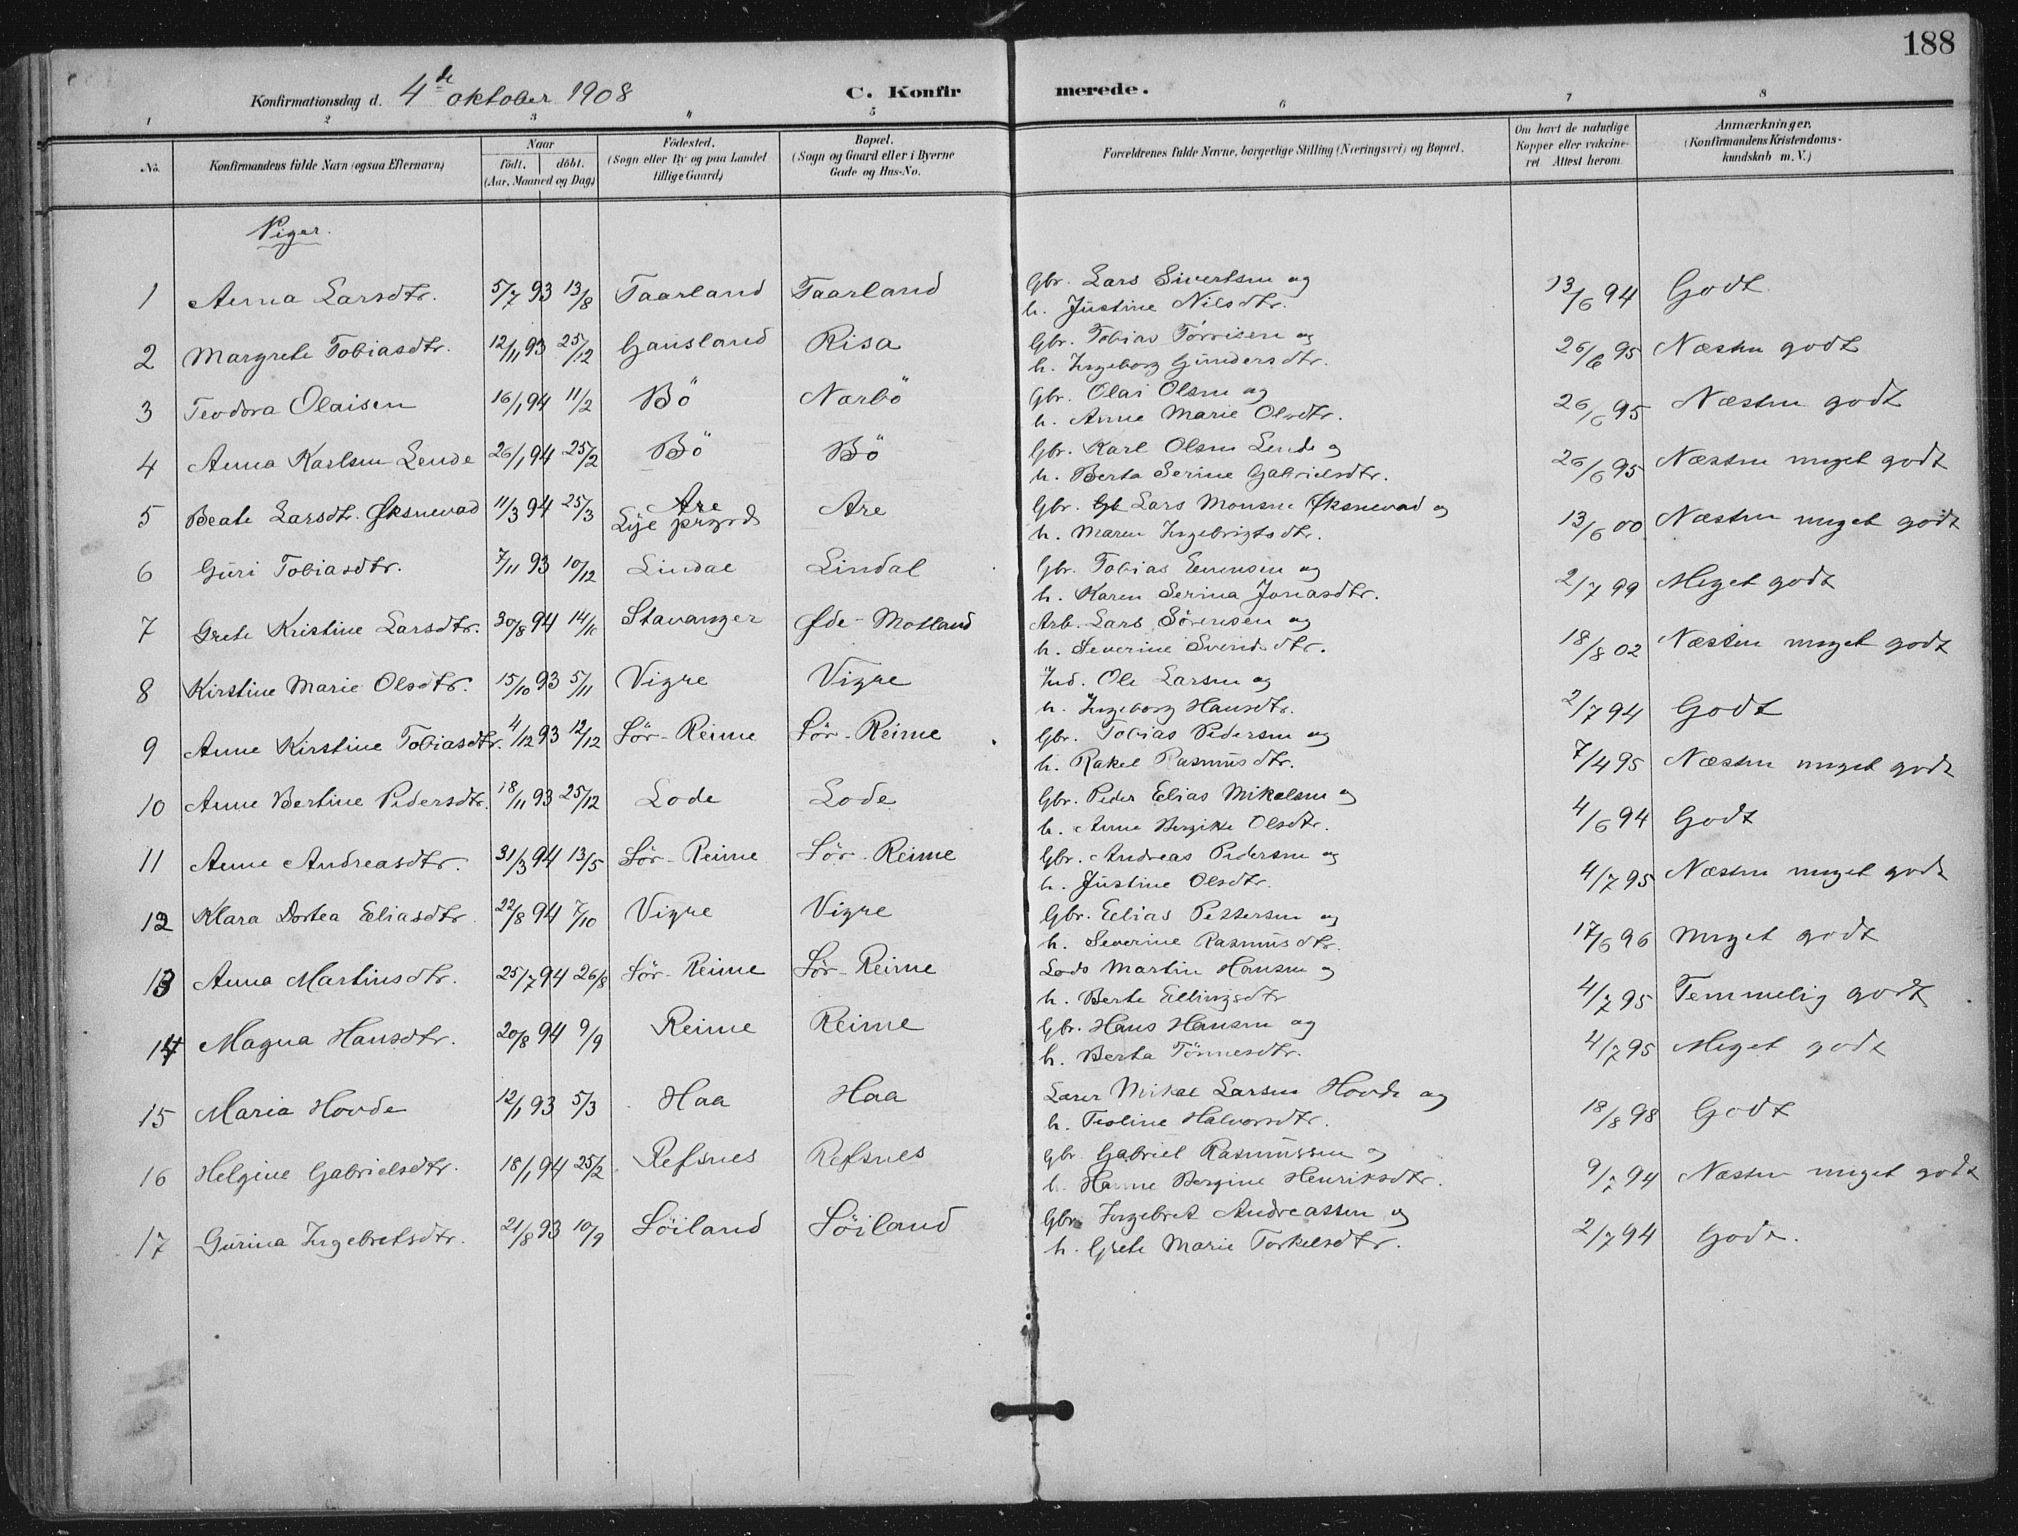 188
Konfirmationsdag d. 4de oktober 1908 C. Konfirmerede.
1 2 3 4 5 6 7 8
No. Konfirmandens fulde Navn (ogsaa Efternavn) Naar født. døbt. (Aar, Maaned og Dag) Fødested. (Sogn eller By og paa Landet tillige Gaard) Bopæl. (Sogn og Gaard eller i Byerne Gade og Hus-No. Forældrenes fulde Navne, borgerlige Stilling (Næringsvei) og Bopæl. Om havt de naturlige Kopper eller vakcineret. Attest herom. Anmærkninger. (Konfirmandens Kristendomskundskab m. V.)
Piger.
1 Anna Larsdtr. 5/7 93 13/8 Taarland Taarland Gbr. Lars Sivertsen og 13/6 94 Godt
h. Justine Nilsdtr.
2 Margrete Tobiasdtr. 12/11 93 25/12 Gausland Risa Gbr. Tobias Torrisen og 26/6 95 Næsten godt
h. Ingeborg Gundersdtr.
3 Teodora Olaisen 16/1 94 11/2 Bö Nærbö Gbr. Olai Olsen og 26/6 95 Næsten godt
h. Anne Marie Olsdtr.
4 Anna Karlsen Lende 26/1 94 25/2 Bö Bö Gbr. Karl Olsen Lende og 26/6 95 Næsten meget godt
h. Berta Serine Gabrielsdtr.
5 Beate Larsdtr. Øksnevad 11/3 94 25/3 Are Lye prgrd Are Gbr. Lars Monsen Øksnevad og 13/6 00 Næsten meget godt
h. Maren Ingebrigtsdtr.
6 Guri Tobiasdtr. 7/11 93 10/12 Lindal Lindal Gbr. Tobias Enensen og 2/7 99 Meget godt
h. Karen Serina Jonasdtr.
7 Grete Kristine Larsdtr. 30/8 94 14/10 Stavanger Øde-Motland Arb. Lars Sörensen og 18/8 02 Næsten meget godt
h. Severine Svendsdtr.
8 Kirstine Marie Olsdtr. 15/10 93 5/11 Vigre Vigre Ind. Ole Larsen og 2/7 94 Godt
h. Ingeborg Hansdtr.
9 Anne Kirstine Tobiasdtr. 4/12 93 12/12 Sör-Reime Sör-Reime Gbr. Tobias Pedersen og 7/4 95 Næsten meget godt
h. Rakel Rasmusdtr.
10 Anne Bertine Pedersdtr. 18/11 93 25/12 Lode Lode Gbr. Peder Elias Mikelsen og 4/6 94 Godt
h. Anne Bergitte Olsdtr.
11 Anne Andreasdtr. 31/3 94 13/5 Sör-Reime Sör-Reime Gbr. Andreas Pedersen og 4/7 95 Næsten meget godt
h. Justine Olsdtr.
12 Klara Dortea Eliasdtr 22/8 94 7/10 Vigre Vigre Gbr. Elias Pettersen og 17/6 96 Meget godt
h. Severine Rasmusdtr.
13 Anna Martinsdtr. 25/7 94 26/8 Sör-Reime Sör-Reime Lods Martin Hansen og 4/7 95 Temmelig godt
h. Berte Ellingsdtr
14 Magna Hansdtr. 20/8 94 9/9 Reime Reime Gbr. Hans Hansen og 4/7 95 Meget godt
h. Berta Tönnesdtr.
15 Maria Hovde 12/1 93 5/3 Haa Haa Lærer Mikal Larsen Hovde og 18/8 98 Godt
h. Teoline Halvorsdtr.
16 Helgine Gabrielsdtr. 18/1 94 25/2 Refsnes Refsnes Gbr. Gabriel Rasmussen og 9/7 94 Næsten meget godt
h. Hanne Bergine Henriksdtr.
17 Gurina Ingebretsdtr. 21/8 93 10/9 Söiland Söiland Gbr. Ingebret Andreassen og 2/7 94 Godt.
h. Grete Marie Torkelsdtr.